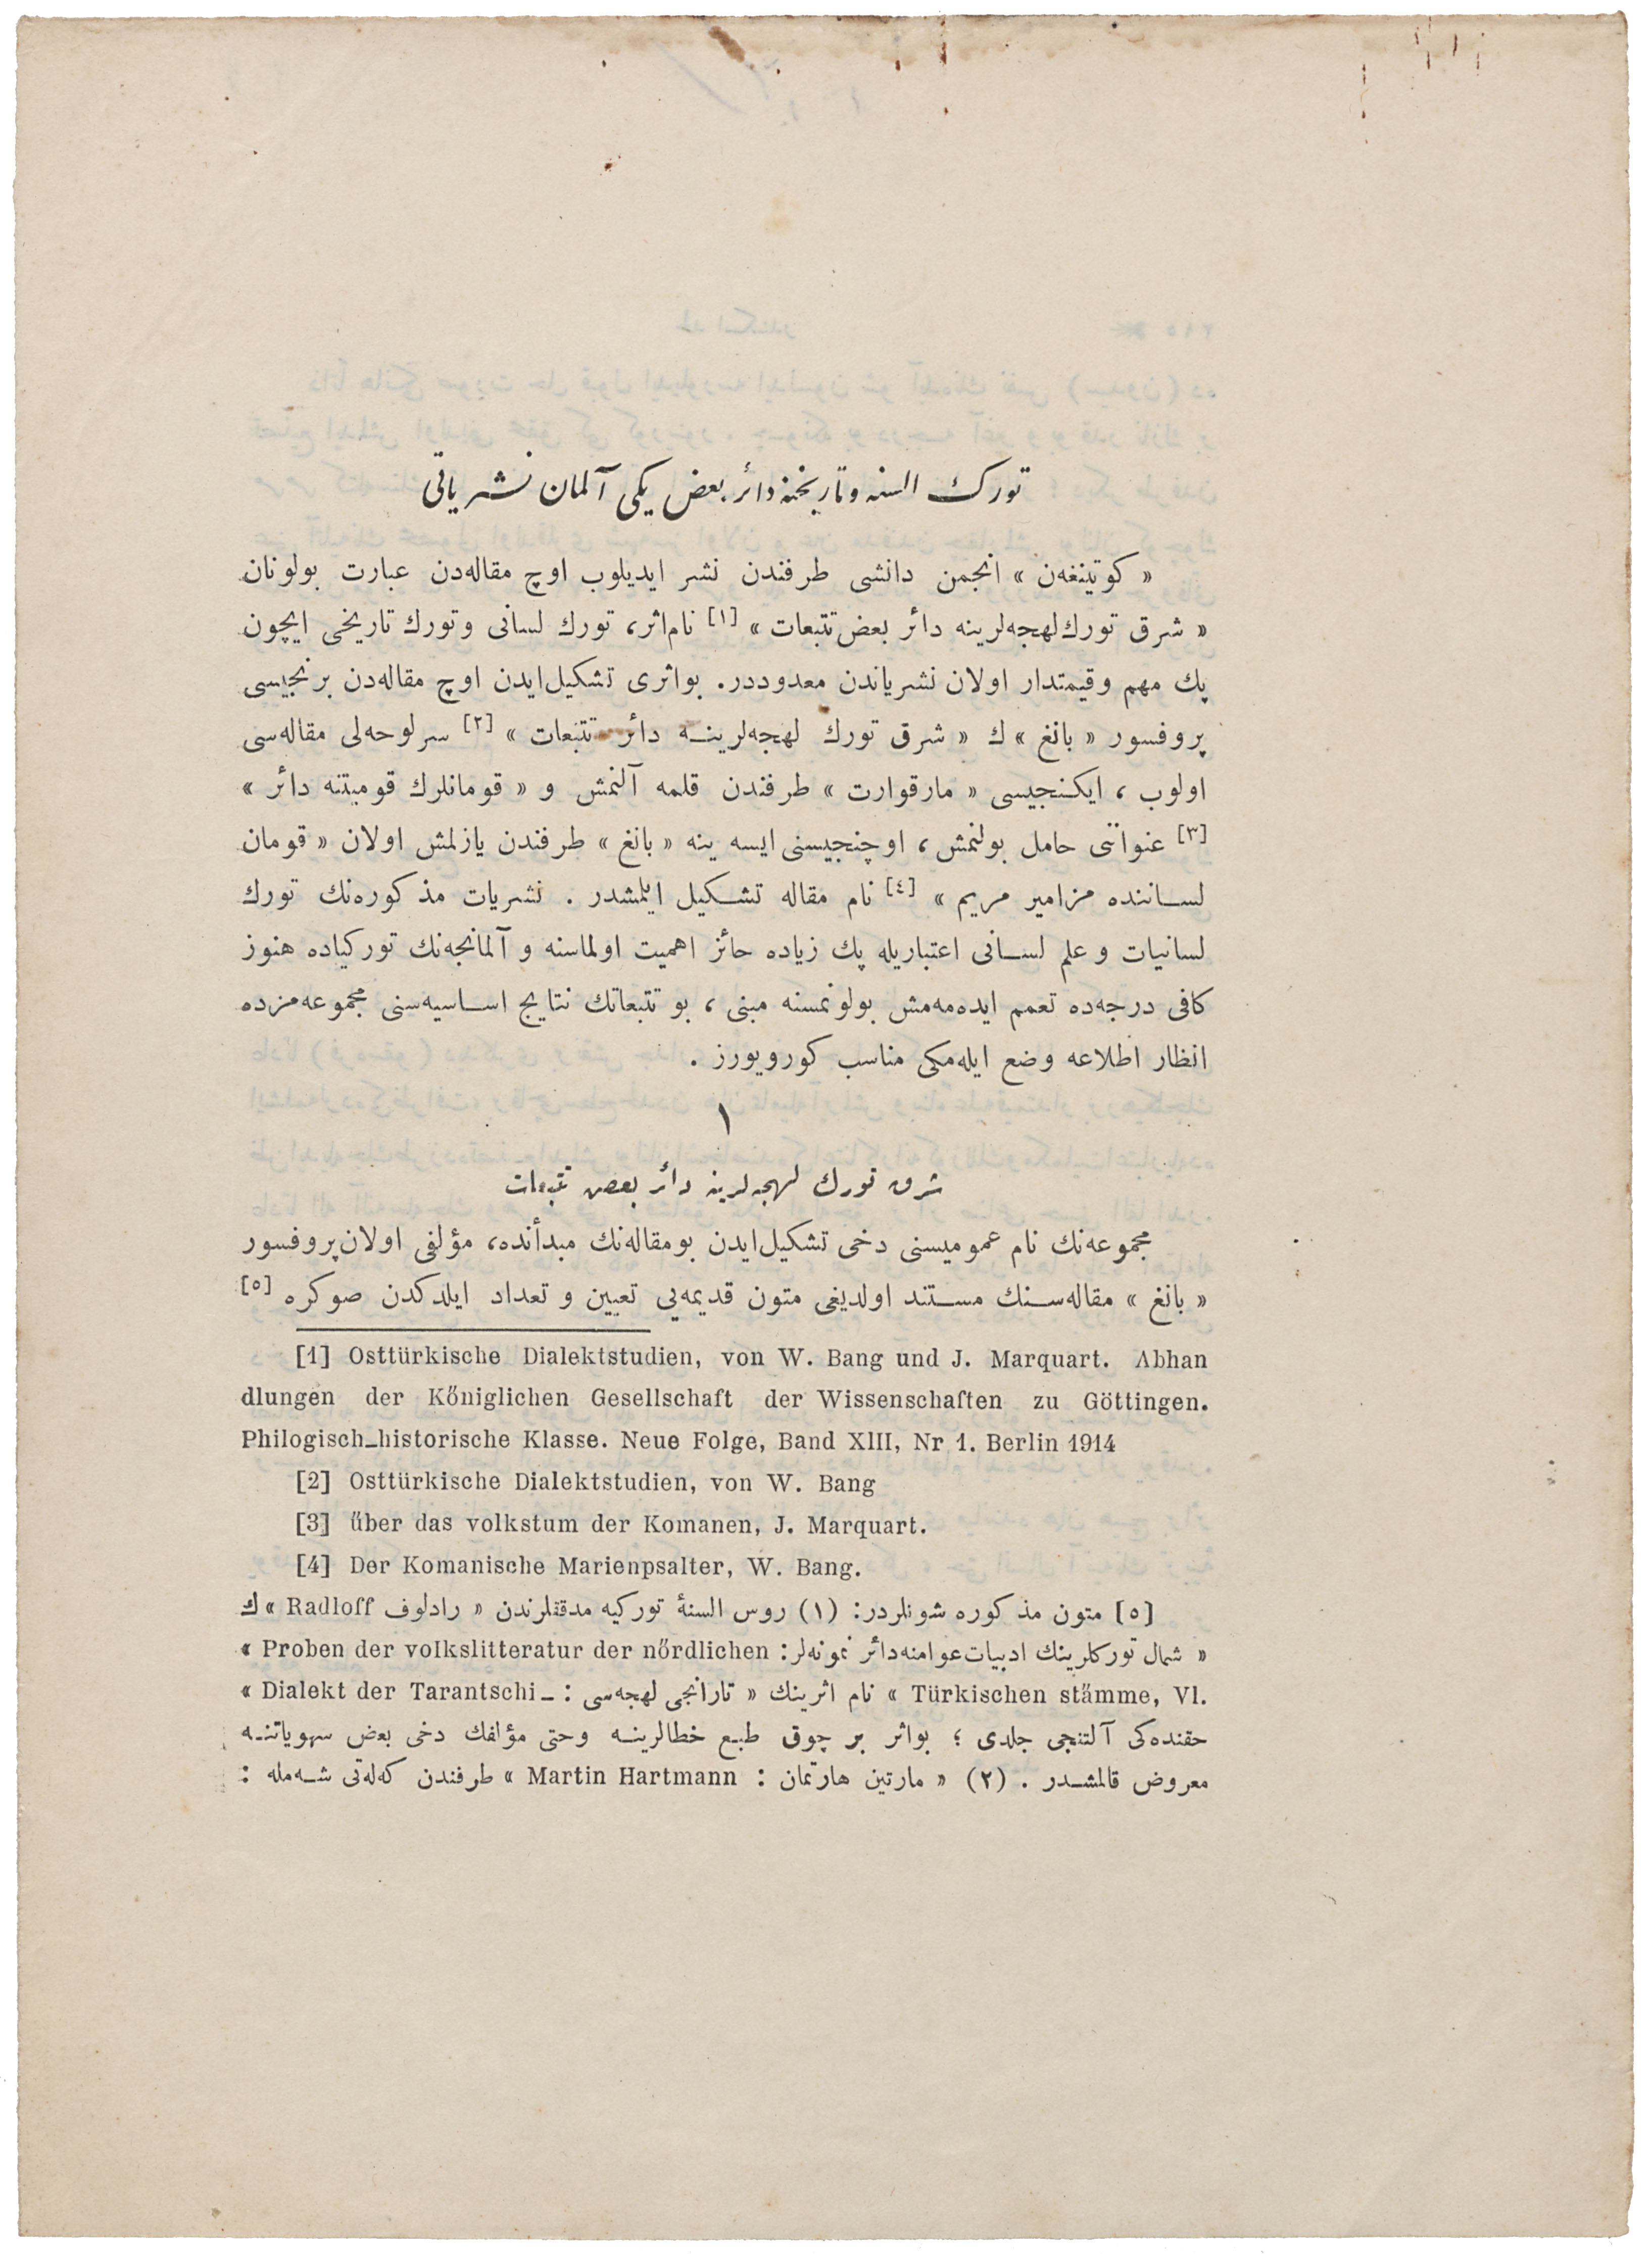 تورك السنه وتاريخنه دائر بعض يكى آلمان نشرياتى
« كوتينغه‌ن » انجمن دانشى طرفندن نشر ايديلوب اوچ مقاله‌دن عبارت بولونان
« شرق تورك لهجه‌لرينه دائر بعض تتبعات » [١] نام اثر، تورك لسانى وتورك تاريخى ايچون
پك مهم وقيمتدار اولان نشرياندن معدوددر. بواثرى تشكيل ايدن اوچ مقاله‌دن برنجيسى
پروفسور « بانغ » ك « شرق تورك لهجه‌لرينـه دائر تتبعات » [٢] سرلوحه‌لى مقاله‌سى
اولوب ، ايكـنجيسى « مارقوارت » طرفندن قلمه آلنمش و « قومانلرك قوميتنه دائر »
[٣] عنواننى حامل بولنمش ، اوچنجيسنى ايسه ينه « بانغ » طرفندن يازلمش اولان « قومان
لسـاننده مزامير مريم » [٤] نام مقاله تشـكيل ايلمشدر . نشريات مذكوره‌نك تورك
لسانيات و علم لسـانى اعتباريله پك زياده حائز اهميت اولماسنه و آلمانجه‌نك توركياده هنوز
كافى درجه‌ده تعمم ايده‌مه‌مش بولونمسنه مبنى ، بو تتبعاتك نتايج اسـاسيه‌سنى مجموعه‌مزده
انظار اطلاعه وضع ايله‌مكى مناسب كورويورز .
١
شرق تورك لهجه‌لرينه دائر بعض تتبعات
مجموعه‌نك نام عموميسنى دخى تشكيل ايدن بومقاله‌نك مبدأنده، مؤلفى اولان پروفسور
« بانغ » مقاله‌سـنك مسـتند اولديغى متون قديمه‌يى تعيين و تعداد ايلدكدن صوكره [٥]
[1] Osttürkische Dialektstudien, von W. Bang und J. Marquart. Abhan
dlungen der Kőniglichen Gesellschaft der Wissenschaften zu Göttingen.
Philogisch_historische Klasse. Neue Folge, Band XIII, Nr 1. Berlin 1914
[2] Osttürkische Dialektstudien, von W. Bang
[3] űber das volkstum der Komanen, J. Marquart.
[4] Der Komanische Marienpsalter, W. Bang.
[٥] متون مذكوره شونلردر: (١) روس السنهٔ توركيه مدققلرندن « رادلوف Radloff » ك
« شمال توركلرينك ادبيات عوامنه دائر نمونه‌لر: Proben der volkslitteratur der nőrdlichen »
Türkischen stämme, Vl. » نام اثرينك « تارانجى لهجه‌سى : _ Dialekt der Tarantschi »
حقنده‌كى آلتنجى جلدى ؛ بواثر بر چوق طبع خطالرينـه وحتى مؤلفك دخى بعض سهوياتنـه
معروض قالمشـدر . (٢) « مارتين هارتمان : Martin Hartmann » طرفندن كه‌له‌تى شـه‌مله :